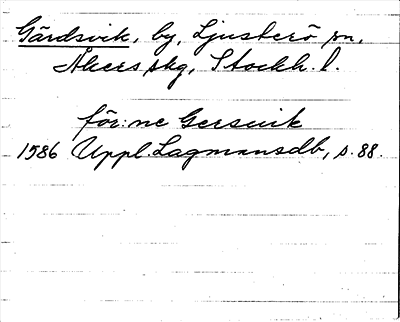 Gärdsvik, by, Ljusterö sn,
Åkers skg, Stockh. l.
för: ne Gersvik
1586 Uppl. Lagmansdb, s. 88.